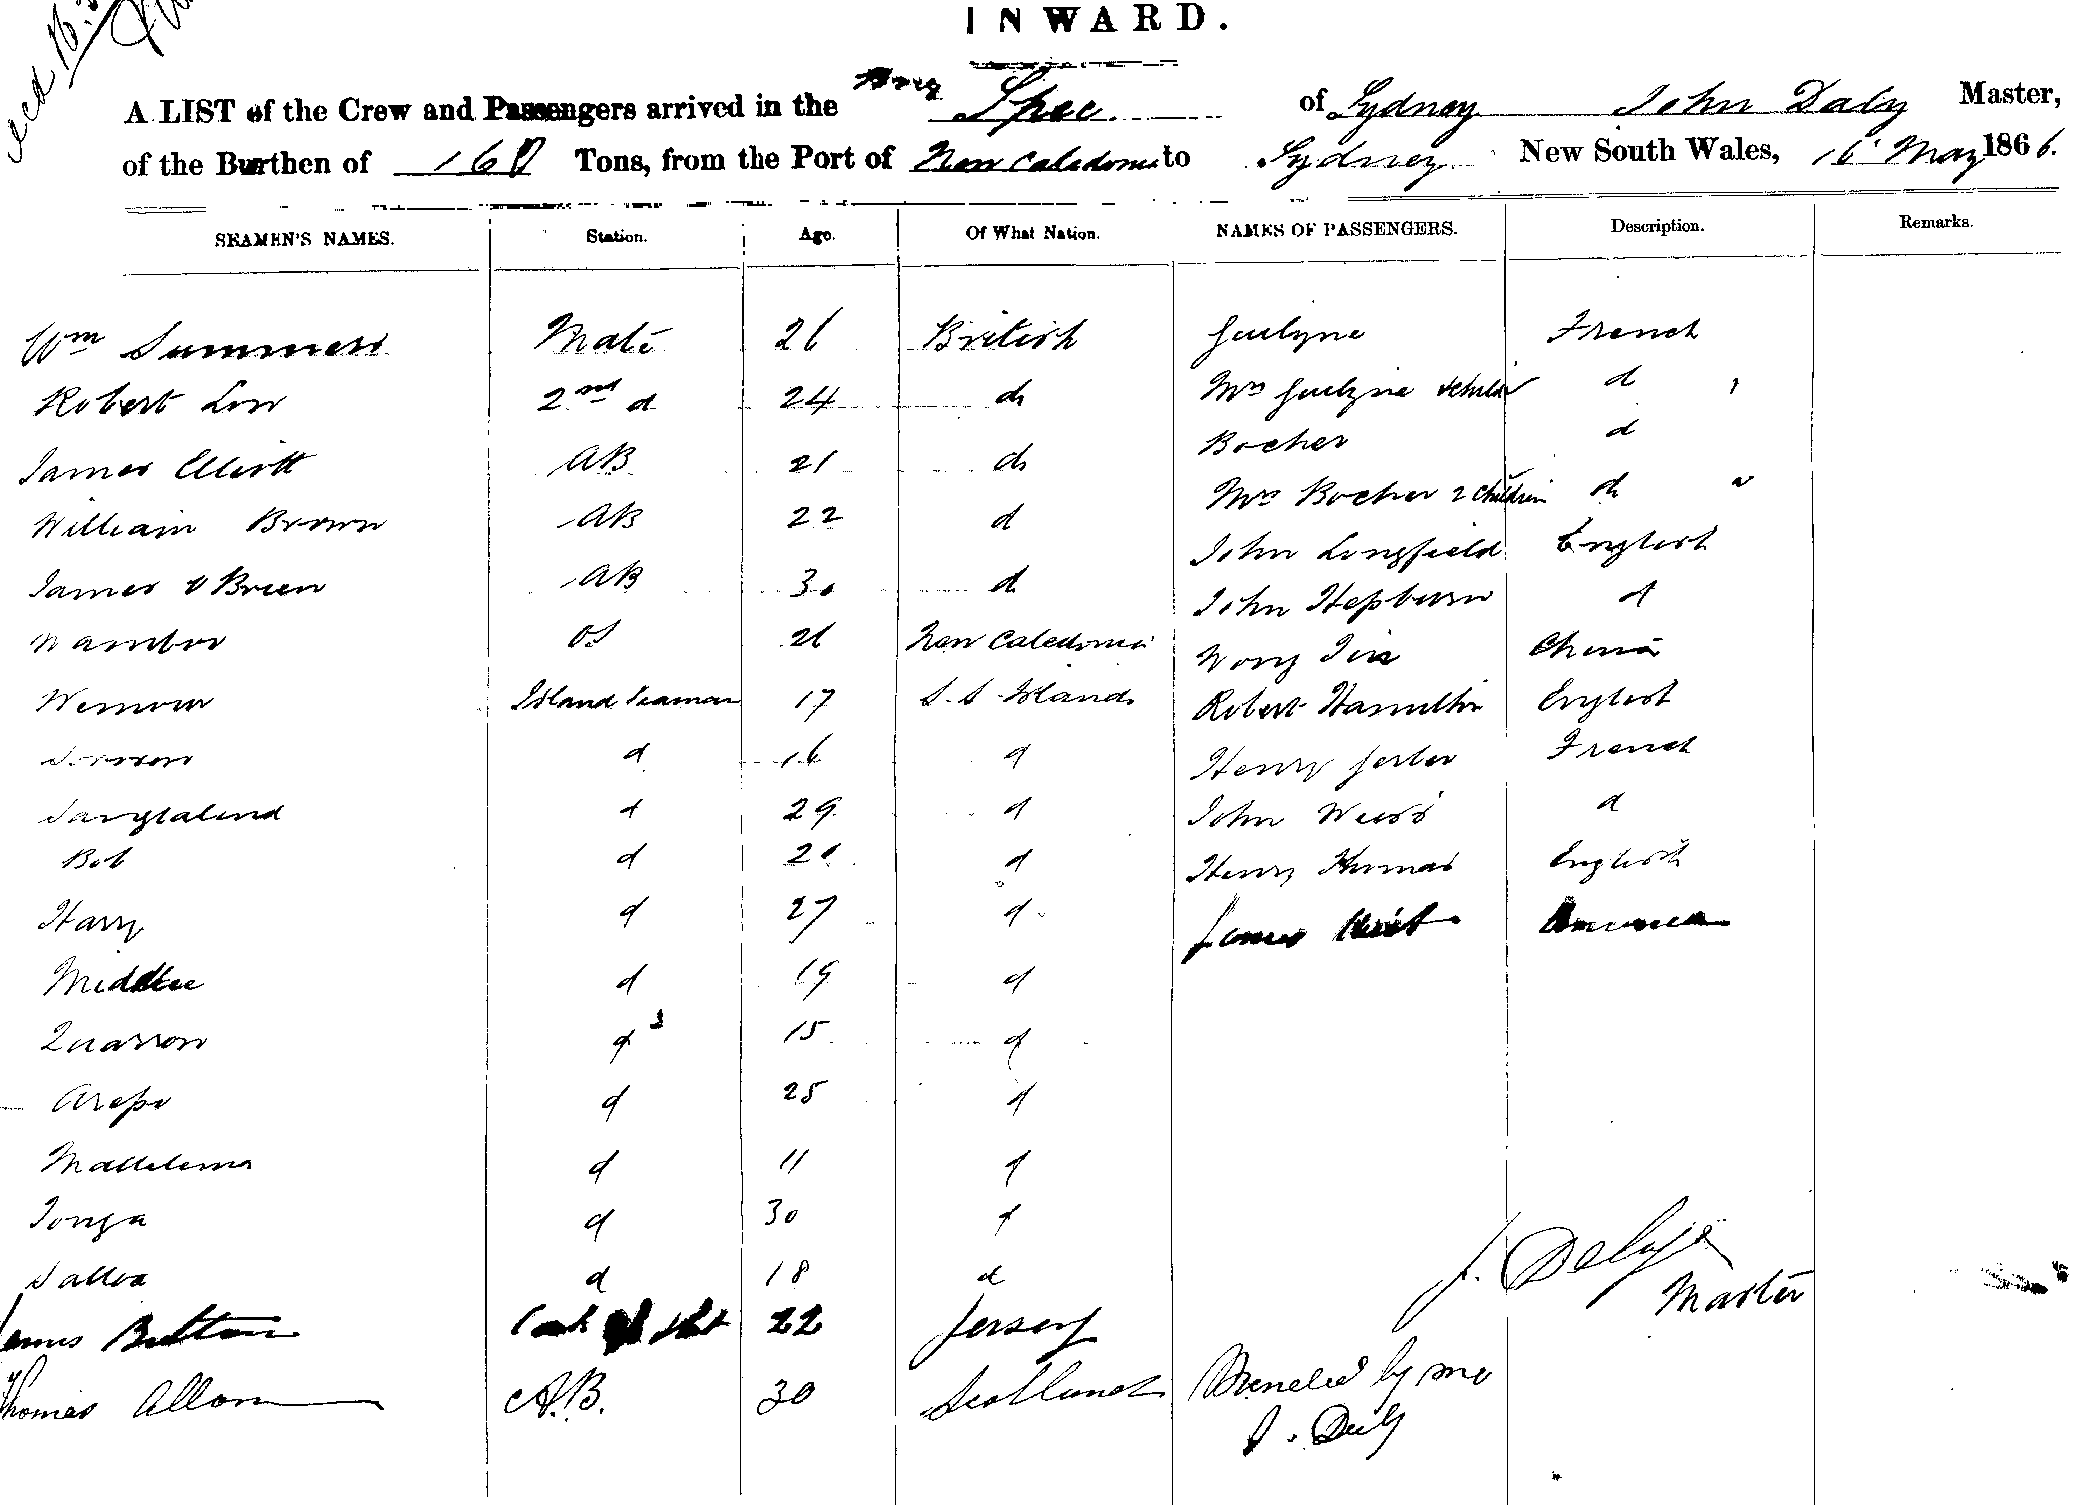 INWARD.
A LIST of the Crew and Passengers arrived in the Brig Spec of Sydney John Daly Master,
of the Burthen of 160 Tons, from the Port of New Caledonia to Sydney New South Wales, 16 May 1866.
SEAMEN'S NAMES. Station. Age. Of What Nation. NAMES OF PASSENGERS. Description. Remarks.
Wm Summers Mate 26 British French
Robert Low 2nd d 24 do Mrs d
James Elliott AB 21 do Bocher d
William Brown AB 22 d Mrs Bocher 2 Children do
James O Brien AB 30 d John Longfield English
Nambor OS 26 New Caledonia John Hepburn d
Island Seaman 17 S. S Islands Wong China
d 16 d Robert Hamilton English
d 29 d Henry French
Bob d d John Weiss d
Harry d 27 d Henry Thomas English
d 19 d James America
d 15 d
Arepo d 25 d
d 11 d
Tonga d 30 d
d 18 d J. Daly
James Button Cook 22 Jersey Master
Thomas Allan A.B. 30 Scotland by me
J. Daly